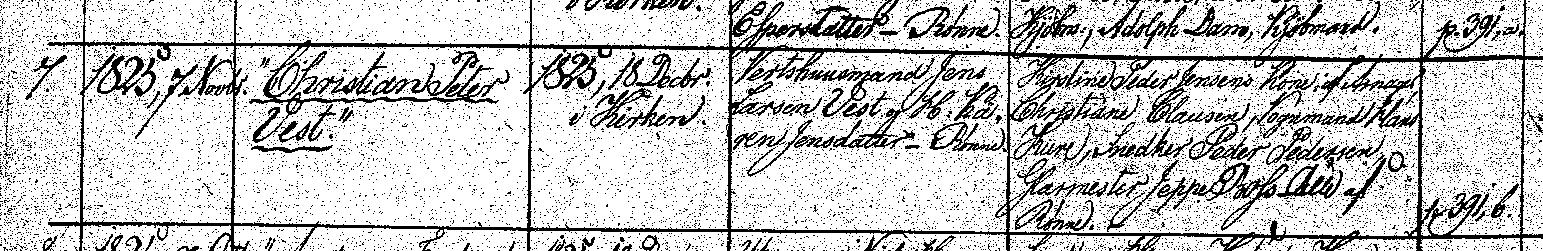 i Kirken.
Espersdatter - Rønne.
Kjøbm., Adolph Dam, Kjøbmand.
p. 391, a.
7
1825, 7 Novbr.
"Christian Peter
Vest."
1825, 18 Decbr.
i Kirken.
Vertshuusmand Jens
Larsen Vest og H. Ka-
ren Jensdatter - Rønne.
Kirstine Peder Jensens Kone
Christiane Clausen, Mand Hans
Kure, Snedker Peder Pedersen,
Glarmester Jeppe alle af
Rønne.
p. 391, b.